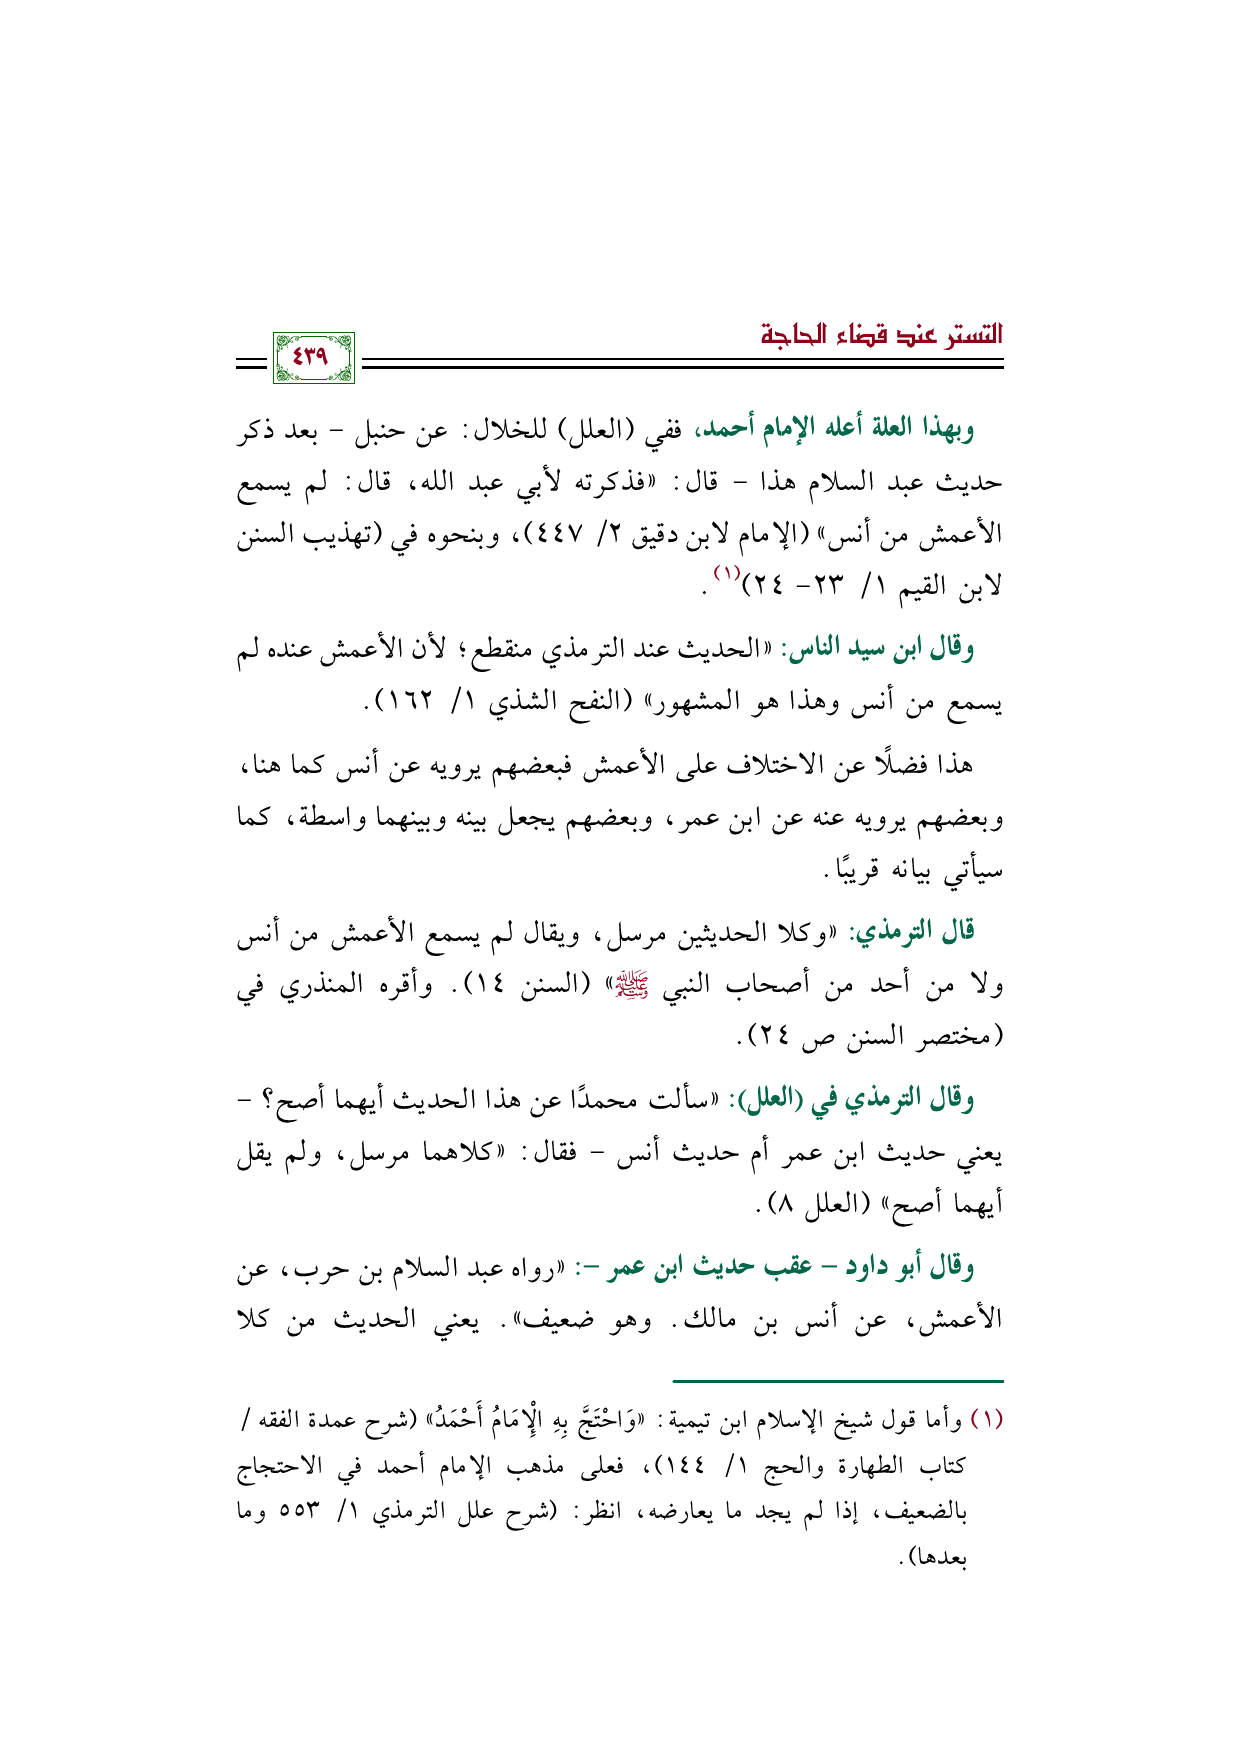 التستر عند قضاء الحاجة
٤٣٩
وبهذا العلة أعله الإمام أحمد، ففي (العلل) للخلال: عن حنبل – بعد ذكر
حديث عبد السلام هذا – قال: «فذكرته لأبي عبد الله، قال: لم يسمع
الأعمش من أنس» (الإمام لابن دقيق ٢/ ٤٤٧)، وبنحوه في (تهذيب السنن
لابن القيم ١/ ٢٣– ٢٤)(١).
وقال ابن سيد الناس: «الحديث عند الترمذي منقطع؛ لأن الأعمش عنده لم
يسمع من أنس وهذا هو المشهور» (النفح الشذي ١/ ١٦٢).
هذا فضلًا عن الاختلاف على الأعمش فبعضهم يرويه عن أنس كما هنا،
وبعضهم يرويه عنه عن ابن عمر، وبعضهم يجعل بينه وبينهما واسطة، كما
سيأتي بيانه قريبًا.
قال الترمذي: «وكلا الحديثين مرسل، ويقال لم يسمع الأعمش من أنس
ولا من أحد من أصحاب النبي ﷺ» (السنن ١٤). وأقره المنذري في
(مختصر السنن ص ٢٤).
وقال الترمذي في (العلل): «سألت محمدًا عن هذا الحديث أيهما أصح؟ –
يعني حديث ابن عمر أم حديث أنس – فقال: «كلاهما مرسل، ولم يقل
أيهما أصح» (العلل ٨).
وقال أبو داود – عقب حديث ابن عمر –: «رواه عبد السلام بن حرب، عن
الأعمش، عن أنس بن مالك. وهو ضعيف». يعني الحديث من كلا
(١) وأما قول شيخ الإسلام ابن تيمية: «وَاحْتَجَّ بِهِ الْإِمَامُ أَحْمَدُ» (شرح عمدة الفقه /
كتاب الطهارة والحج ١/ ١٤٤)، فعلى مذهب الإمام أحمد في الاحتجاج
بالضعيف، إذا لم يجد ما يعارضه، انظر: (شرح علل الترمذي ١/ ٥٥٣ وما
بعدها).